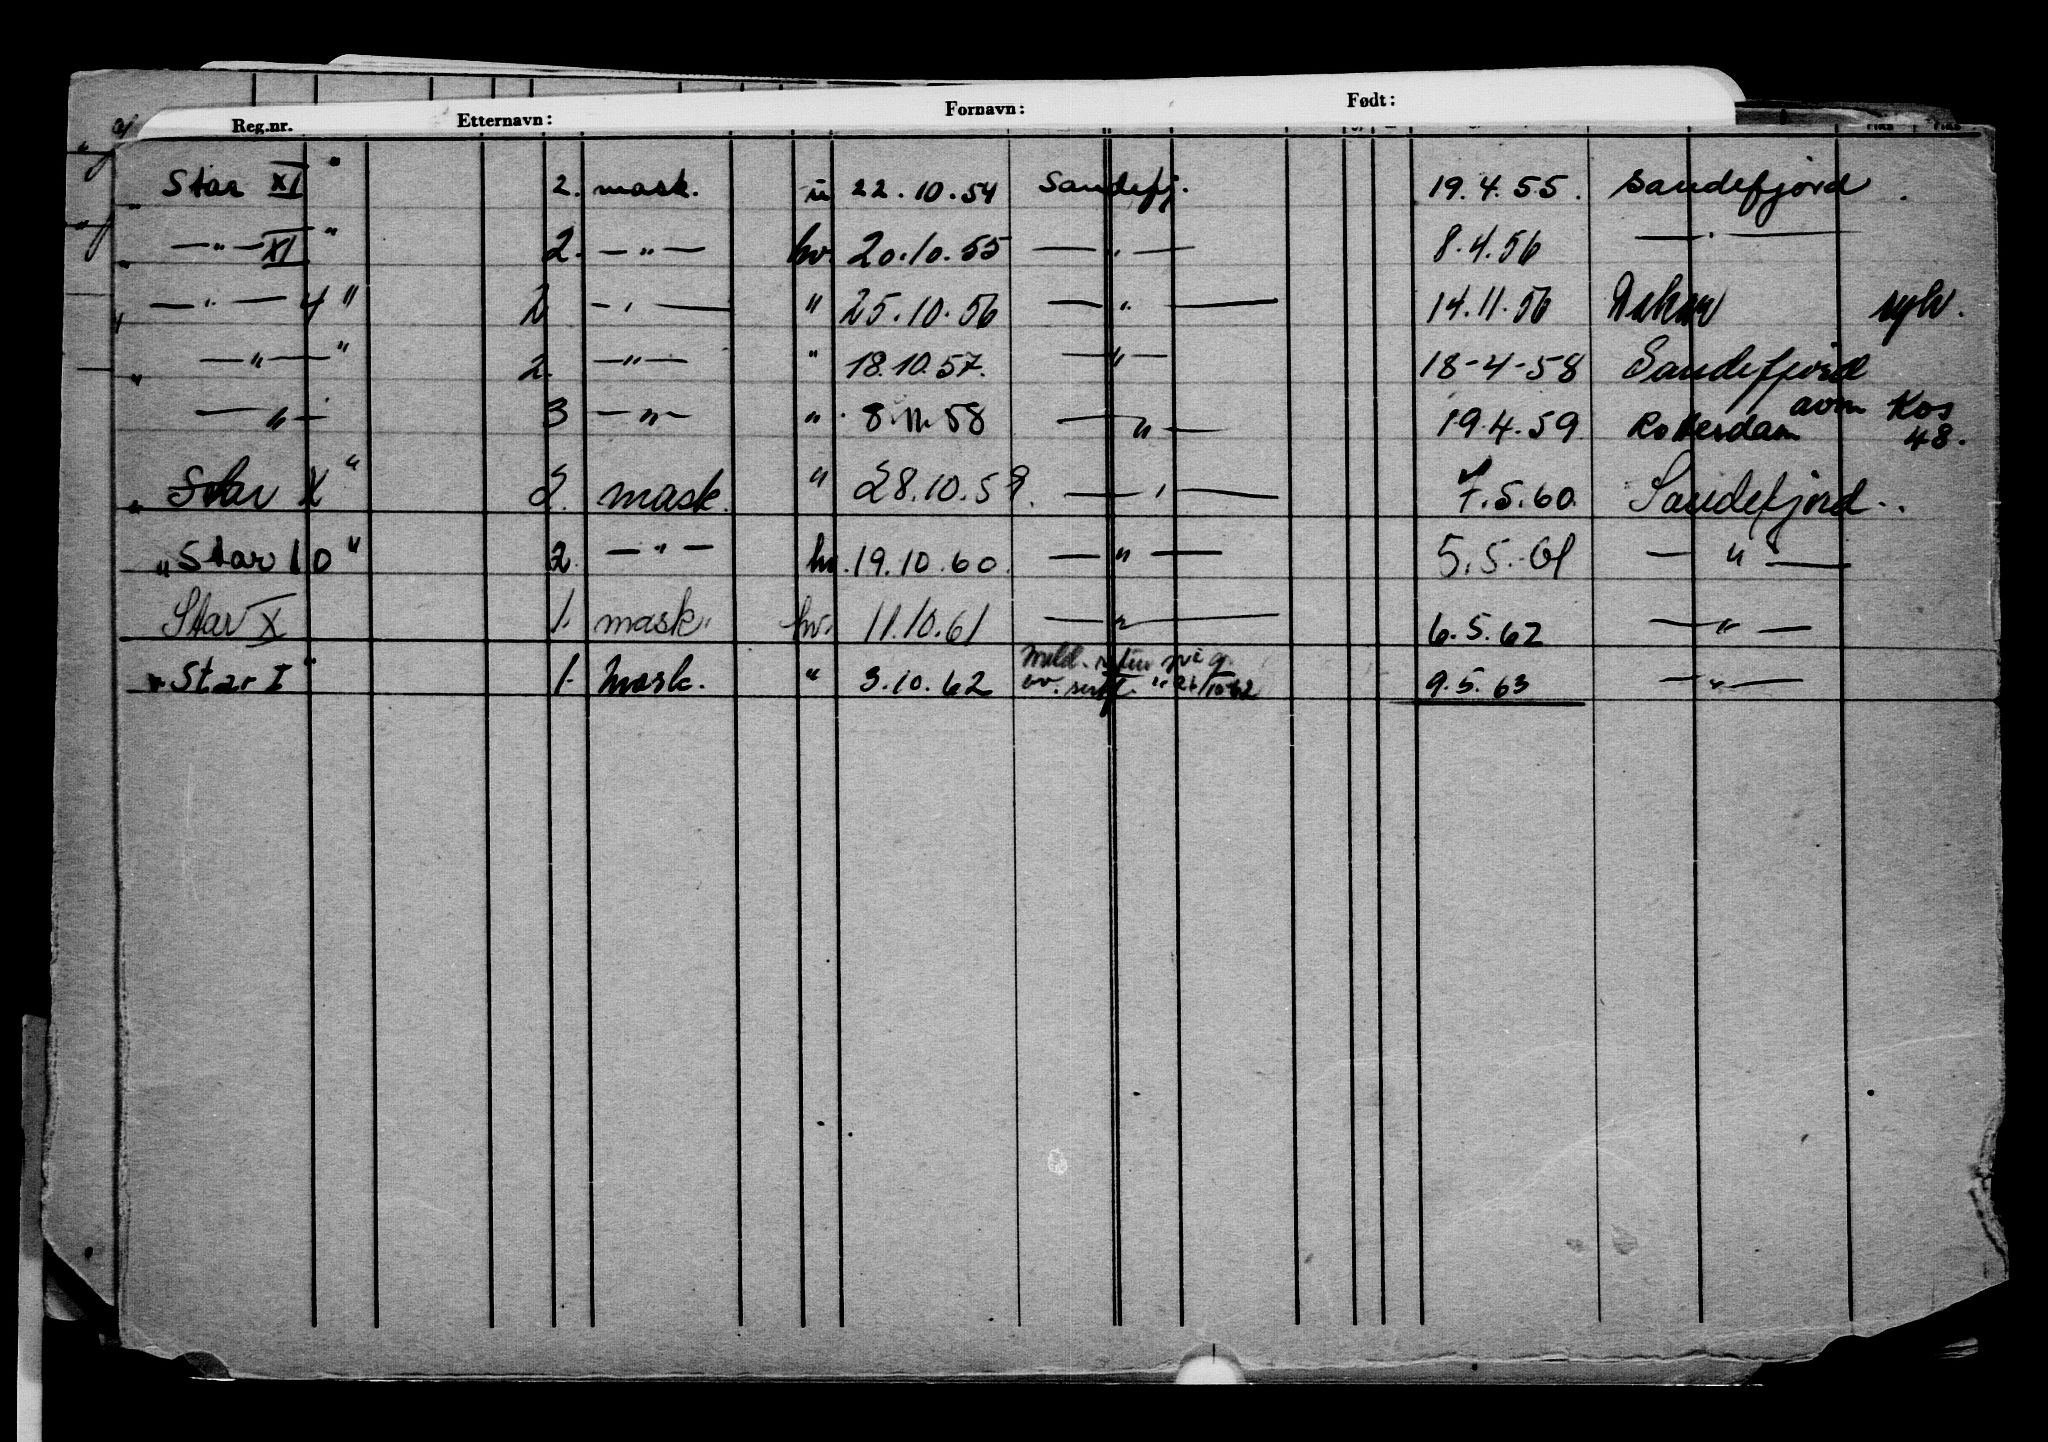 Reg.nr. Etternavn: Fornavn: Født:
"Star XI" 2. mask. u 22.10.54 Sandefj. 19.4.55. Sandefjord.
" —"— XI" 2. —"— hv. 20.10.55 —"— 8.4.56 —"—
—"— 4" 2 —"— " 25.10.56 —"— 14.11.56 syk.
" —"—" 2. —"— " 18.10.57. —"— 18-4-58 Sandefjord
—"— 3 —"— " 8.11.58 —"— 19.4.59 Rotterdam avm Kos 48.
"Star X" 2. mask. " 28.10.59. —"— 7.5.60. Sandefjord.
"Star 10" 2. —"— hv. 19.10.60. —"— 5.5.61 —"—
Star X 1. mask. hv. 11.10.61 —"— 6.5.62 —"—
"Star I" 1. mask. " 3.10.62 9.5.63 —"—